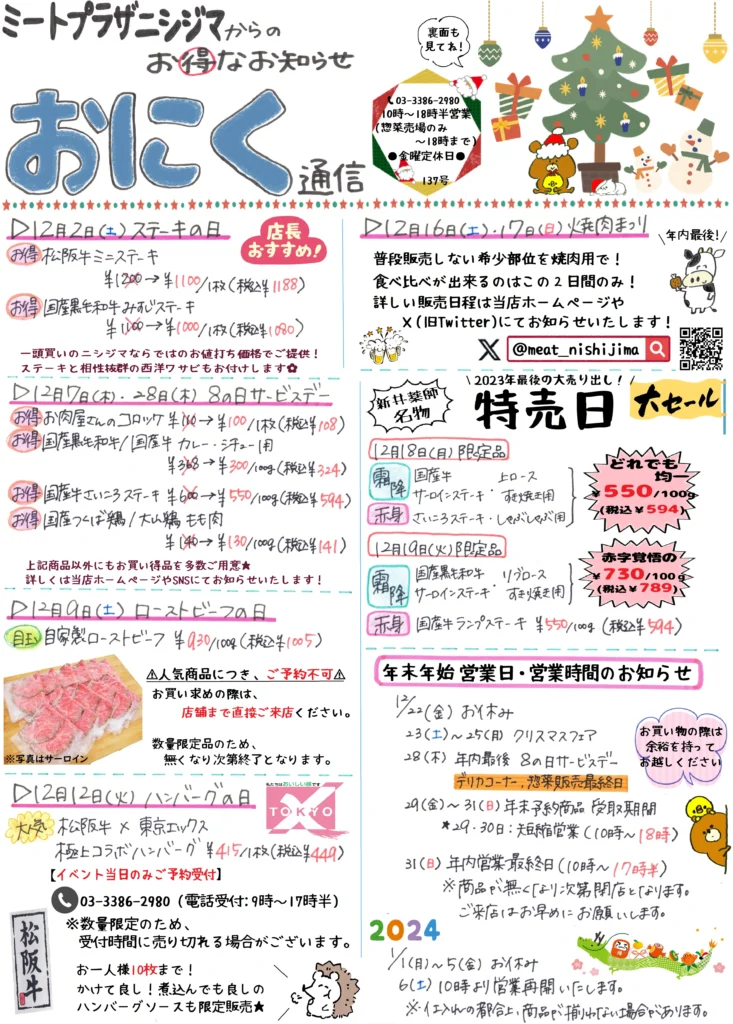 ミートプラザニシジマからの
お得なお知らせ
おにく通信
裏面も
見てね!
03-3386-2980
10時〜18時半営業
(惣菜売場のみ
〜18時まで)
●金曜定休日●
137号
▷12月2日(土)ステーキの日
店長
おすすめ!
お得 松阪牛ミニステーキ
¥1200→¥1100/1枚(税込¥1188)
お得 国産黒毛和牛みすじステーキ
¥1100→¥1000/1枚(税込¥1080)
一頭買いのニシジマならではのお値打ち価格でご提供!
ステーキと相性抜群の西洋ワサビもお付けします✿
▷12月7日(木)・28日(木) 8の日サービスデー
お得 お肉屋さんのコロッケ ¥110→¥100/1枚(税込¥108)
お得 国産黒毛和牛/国産牛 カレー・シチュー用
¥368→¥300/100g(税込¥324)
お得 国産牛さいころステーキ ¥600→¥550/100g(税込¥594)
お得 国産つくば鶏/大山鶏 もも肉
¥140→¥130/100g(税込¥141)
上記商品以外にもお買い得品を多数ご用意★
詳しくは当店ホームページやSNSにてお知らせいたします!
▷12月9日(土) ローストビーフの日
目玉 自家製ローストビーフ ¥930/100g(税込¥1005)
⚠人気商品につき、ご予約不可⚠
お買い求めの際は、
店舗まで直接ご来店ください。
数量限定品のため、
無くなり次第終了となります。
※写真はサーロイン
▷12月12日(火) ハンバーグの日
私たちはおいしい顔です
TOKYO X
大人気 松阪牛×東京エックス
極上コラボハンバーグ ¥415/1枚(税込¥449)
【イベント当日のみご予約受付】
03-3386-2980(電話受付:9時〜17時半)
※数量限定のため、
受付時間に売り切れる場合がございます。
松阪牛
お一人様10枚まで!
かけて良し!煮込んでも良しの
ハンバーグソースも限定販売★
▷12月16日(土)・17日(日)焼肉まつり
年内最後!
普段販売しない希少部位を焼肉用で!
食べ比べが出来るのはこの2日間のみ!
詳しい販売日程は当店ホームページや
X(旧Twitter)にてお知らせいたします!
X @meat_nishijima
新井薬師
名物
2023年最後の大売り出し!
特売日
大セール
12月18日(月)限定品
霜降 国産牛 上ロース
サーロインステーキ・すき焼き用
赤身 さいころステーキ・しゃぶしゃぶ用
どれでも
均一
¥550/100g
(税込¥594)
12月19日(火)限定品
霜降 国産黒毛和牛 リブロース
サーロインステーキ・すき焼き用
赤字覚悟の
¥730/100g
(税込¥789)
赤身 国産牛ランプステーキ ¥550/100g (税込¥594)
年末年始 営業日・営業時間のお知らせ
12/22(金) お休み
23(土)〜25(月) クリスマスフェア
28(木) 年内最後 8の日サービスデー
デリカコーナー、惣菜販売最終日
お買い物の際は
余裕を持って
お越しください
29(金)〜31(日) 年末予約商品 受取期間
★29・30日:短縮営業(10時〜18時)
31(日) 年内営業最終日(10時〜17時半)
※商品が無くなり次第閉店となります。
ご来店はお早めにお願いします。
2024
1/1(月)〜5(金) お休み
6(土) 10時より営業再開いたします。
※仕入れの都合上、商品が揃わない場合があります。